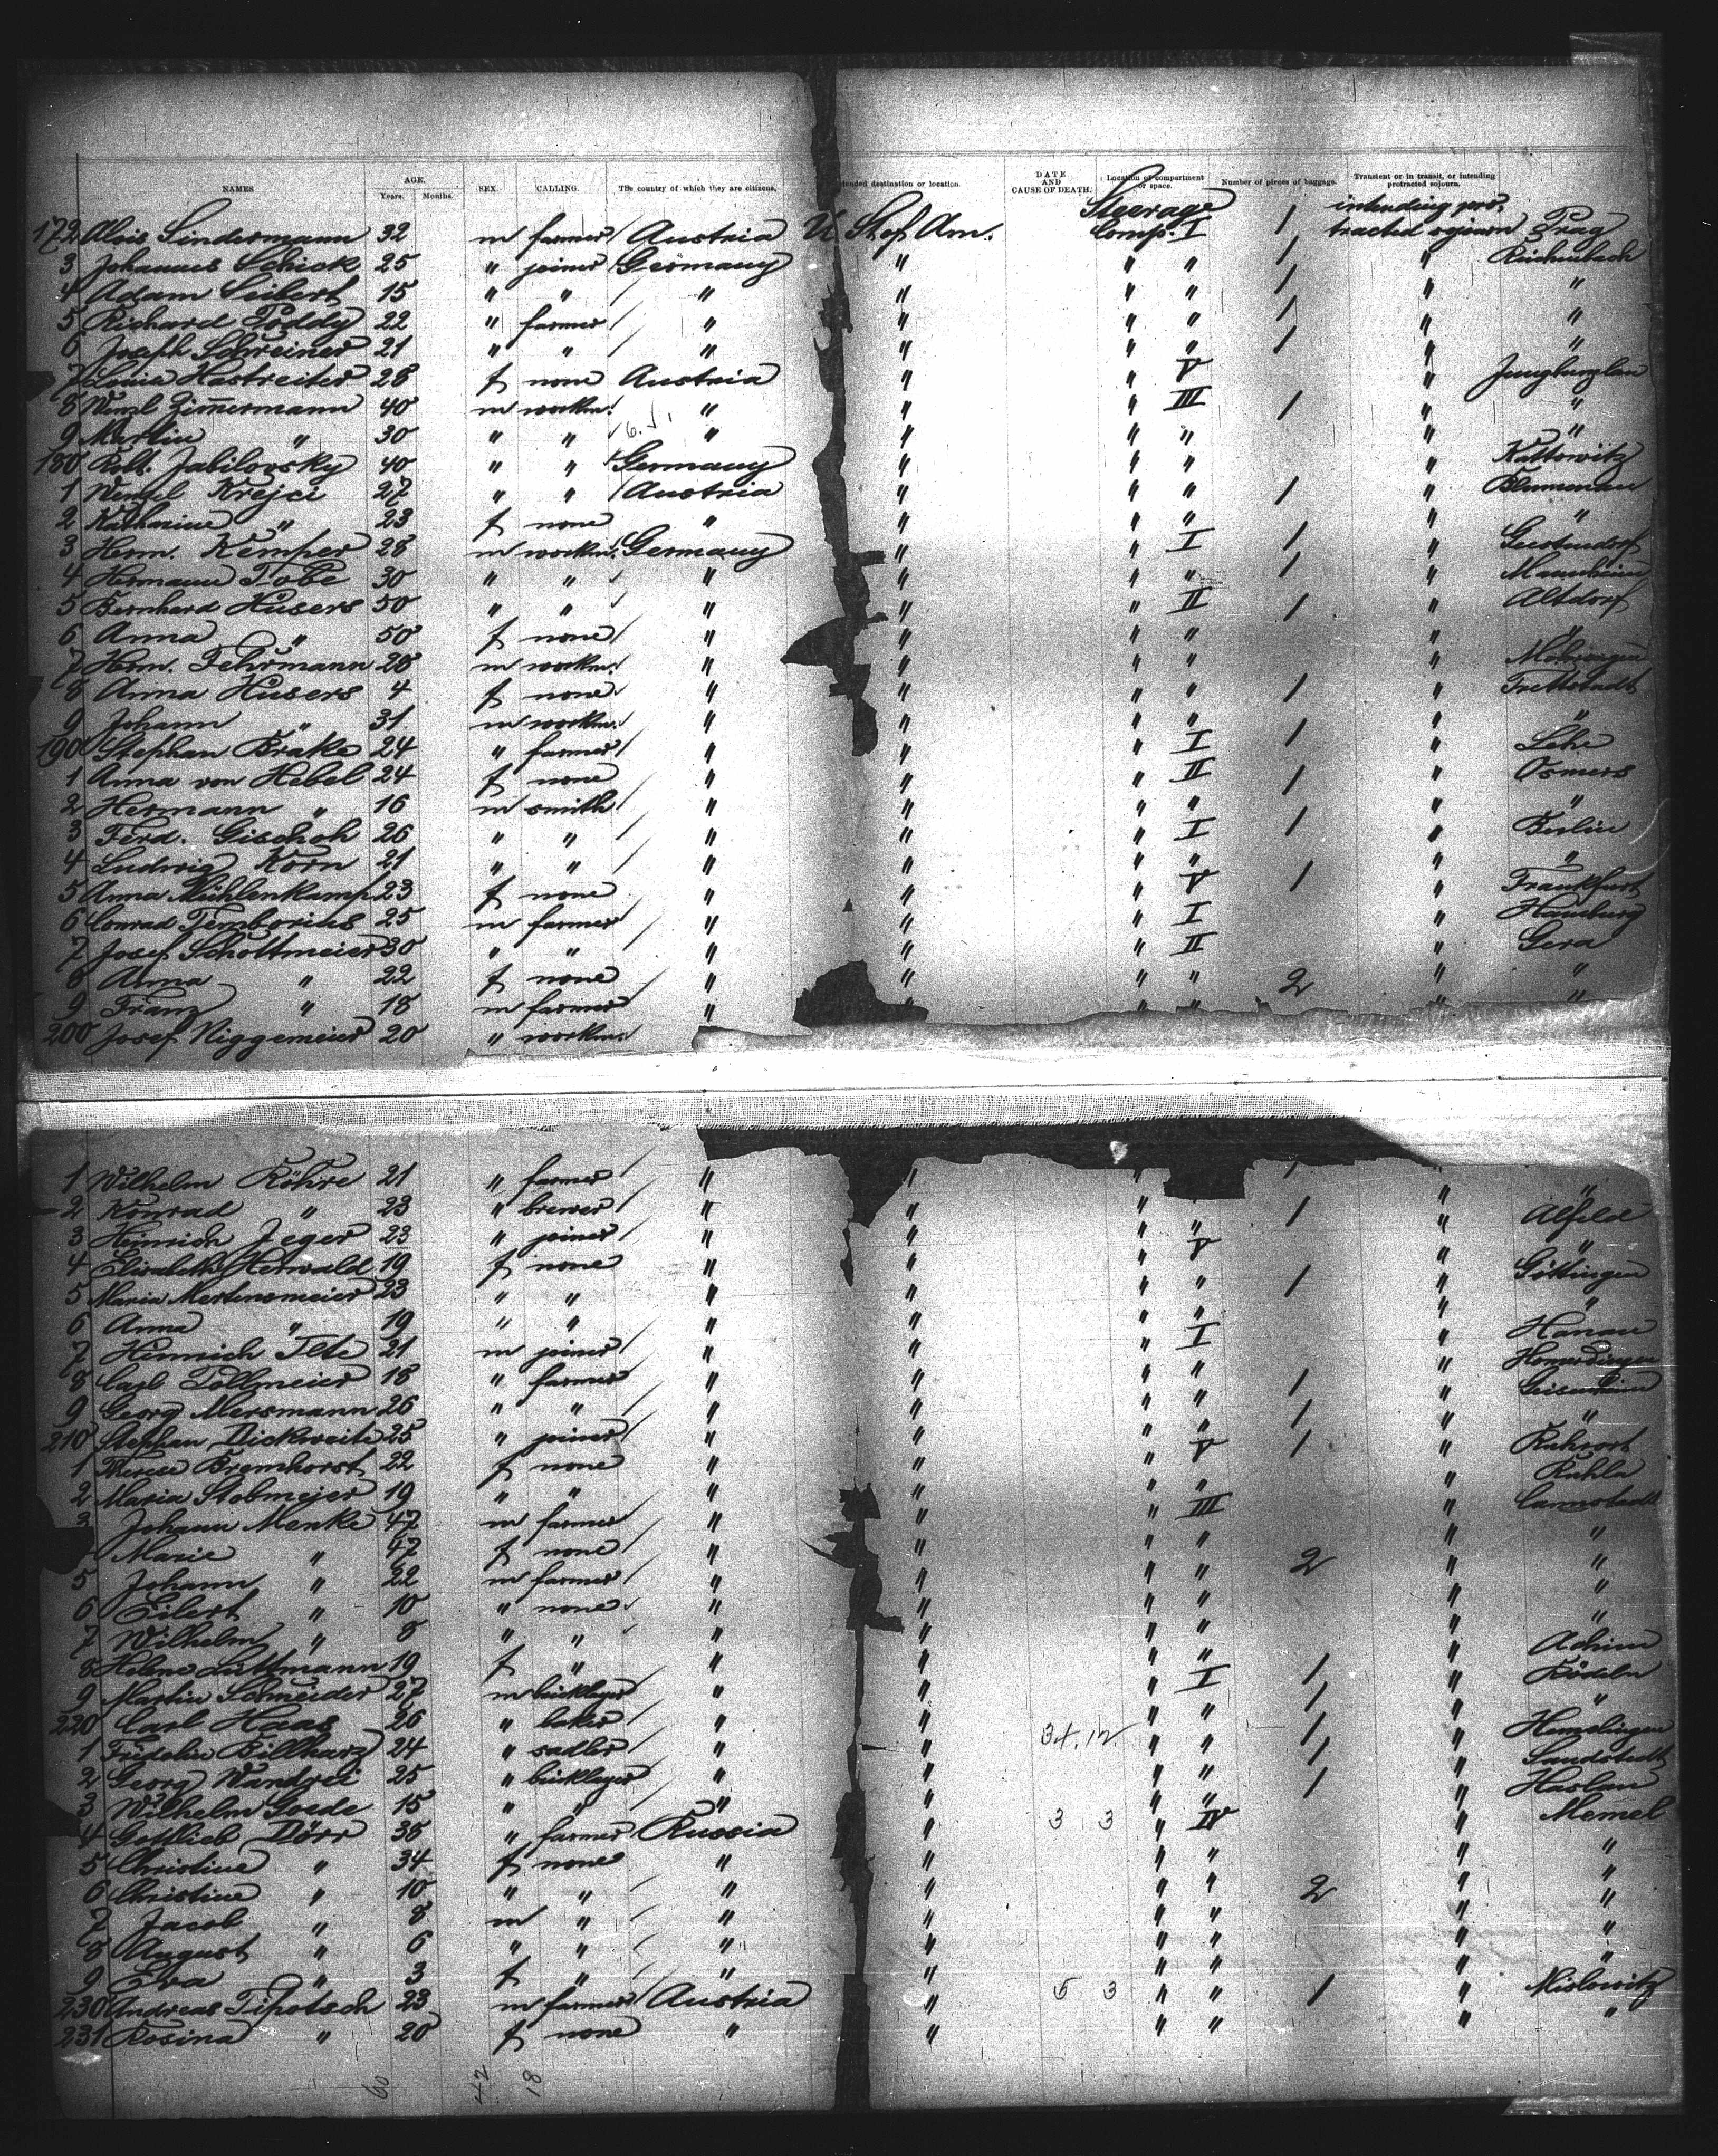 NAMES AGE. Years. Months. SEX. CALLING. The country of which they are citizens. tended destination or location. DATE AND CAUSE OF DEATH. Location of compartment or space. Number of pieces of baggage. Transient or in transit, or intending protracted sojourn.
172 Alois Lindermann 32 m farmer Austria U. St. of Am. Steerage Comp. I 1 intending protracted sojourn Prag
3 Johannes Schick 25 " joiner Germany " " " 1 " Reichenbach
4 Adam Seibert 15 " " " " " " 1 " "
5 Richard Poddy 22 " farmer " " " " 1 " "
6 Joseph Schreiner 21 " " " " " " 1 " "
7 Louise Hastreiter 28 f none Austria " " V " Jungbunzlau
8 Wenzl Zimmermann 40 m workm. " " " III 1 " "
9 Martin " 30 " " " " " " " "
180 Robt. Jabilovsky 40 " " Germany " " " " Kattowitz
1 Wenzel Krejci 27 " " Austria " " " 1 " Blumenau
2 Katharine " 23 f none " " " " " "
3 Herm. Kemper 28 m workm. Germany " " I 1 " Gerstendorf
4 Hermann Tobe 30 " " " " " " 1 " Mannheim
5 Bernhard Husers 50 " " " " " II 1 " Altdorf
6 Anna " 50 f none " " " " " "
7 Herm. Fehrmann 28 m workm. " " " " "
8 Anna Husers 4 f none " " " " 1 " Frettstadt
9 Johann " 31 m workm. " " " " " "
190 Stephan Brake 24 " farmer " " " I 1 " Lehe
1 Anna von Hebel 24 f none " " " II 1 " Osmers
2 Hermann " 16 m smith " " " " " "
3 Ferd. Gischoh 26 " " " " " I 1 " Berlin
4 Ludwig Korn 21 " " " " " " " "
5 Anna Mühlenkamp 23 f none " " " V 1 " Frankfurt
6 Conrad Temborius 25 m farmer " " " I " Hamburg
7 Josef Schottmeier 30 " " " " " II " Gera
8 Anna " 22 f none " " " " 2 " "
9 Franz " 18 m farmer " " " " " "
200 Josef Niggemeier 20 " workm.
1 Wilhelm Röhre 21 " farmer " " " 1 " "
2 Konrad " 23 " brewer " " " " 1 " Alfeld
3 Heinrich Jeger 23 " joiner " " " V " "
4 Elisabeth Herwald 19 f none " " " " 1 " Göttingen
5 Maria Mertensmeier 23 " " " " " " " "
6 Anna " 19 " " " " " I " Hanau
7 Heinrich Ilte 21 m joiner " " " " "
8 Carl Tollmeier 18 " farmer " " " " 1 " Geisenheim
9 Georg Mersmann 26 " " " " " " 1 " "
210 Stephan Dickweite 25 " joiner " " " V 1 " Ruhrort
1 Therese Bremhorst 22 f none " " " " " Ruhla
2 Maria Stolmejer 19 " " " " " III " Cannstadt
3 Johann Menke 47 m farmer " " " " " "
Marie " 47 f none " " " " 2 " "
5 Johann " 22 m farmer " " " " " "
6 Eilert " 10 " none " " " " " "
7 Wilhelm " 8 " " " " " " " Achim
8 Helene Luttmann 19 f " " " " I 1 " Rödeln
9 Martin Schneider 27 m bricklayer " " " " 1 " "
220 Carl Haas 26 " baker " " 34.12. " " 1 " Hemelingen
1 Fridolin Billharz 24 " sadler " " " " 1 " Sandstedt
2 Georg Wandrei 25 " bricklayer " " " " 1 " Haslau
3 Wilhelm Goede 15 " " " " 3 3 " IV " Memel
4 Gottlieb Dörr 38 " farmer Russia " " " " "
5 Christine " 34 f none " " " " " "
6 Christine " 10 " " " " " " 2 " "
7 Jacob " 8 m " " " " " " "
8 August " 6 " " " " " " " "
9 Eva " 3 f " " " " " " "
230 Andreas Tipotsch 23 m farmer Austria " 5 3 " " 1 " Mislowitz
231 Rosina " 20 f none " " " " " "
60 42 18